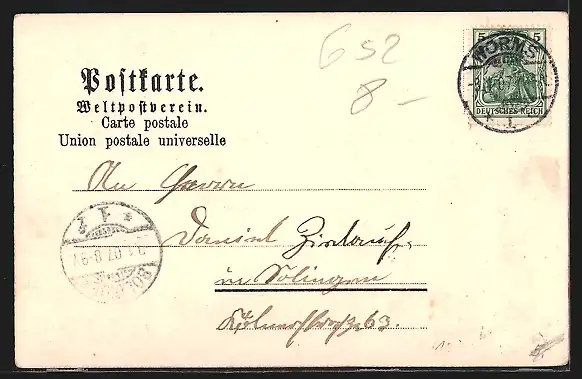 652
8 –
Postkarte.
Weltpostverein.
Carte postale
Union postale universelle
5 5
WORMS
DEUTSCHES REICH
1
An Herrn
Daniel
in Solingen
63.
1.07.8-9V